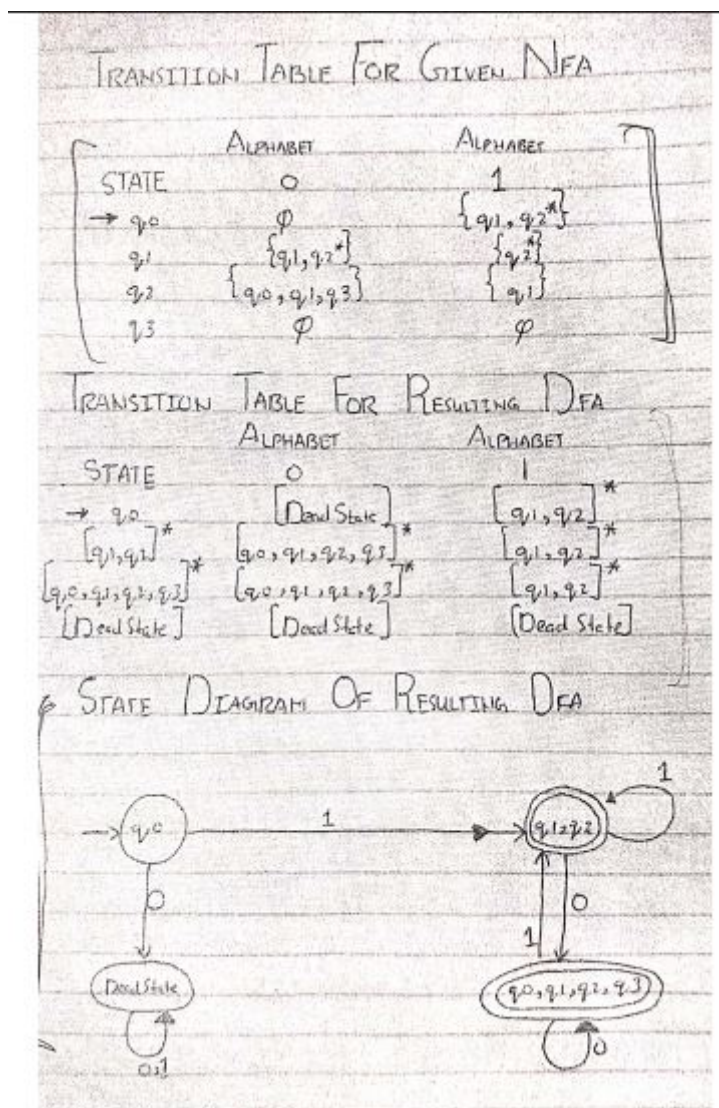 TRANSITION TABLE FOR GIVEN NFA
ALPHABET ALPHABET
STATE 0 1
→ q0 φ {q1, q2*}
q1 {q1, q2*} {q2*}
q2 {q0, q1, q3} {q1}
q3 φ φ
TRANSITION TABLE FOR RESULTING DFA
ALPHABET ALPHABET
STATE 0 1
→ q0 [Dead State] [q1, q2]*
[q1, q2]* [q0, q1, q2, q3]* [q1, q2]*
[q0, q1, q2, q3]* [q0, q1, q2, q3]* [q1, q2]*
[Dead State] [Dead State] [Dead State]
STATE DIAGRAM OF RESULTING DFA
q0 1 q1,q2 1
0 1 0
Dead State q0, q1, q2, q3
0,1 0